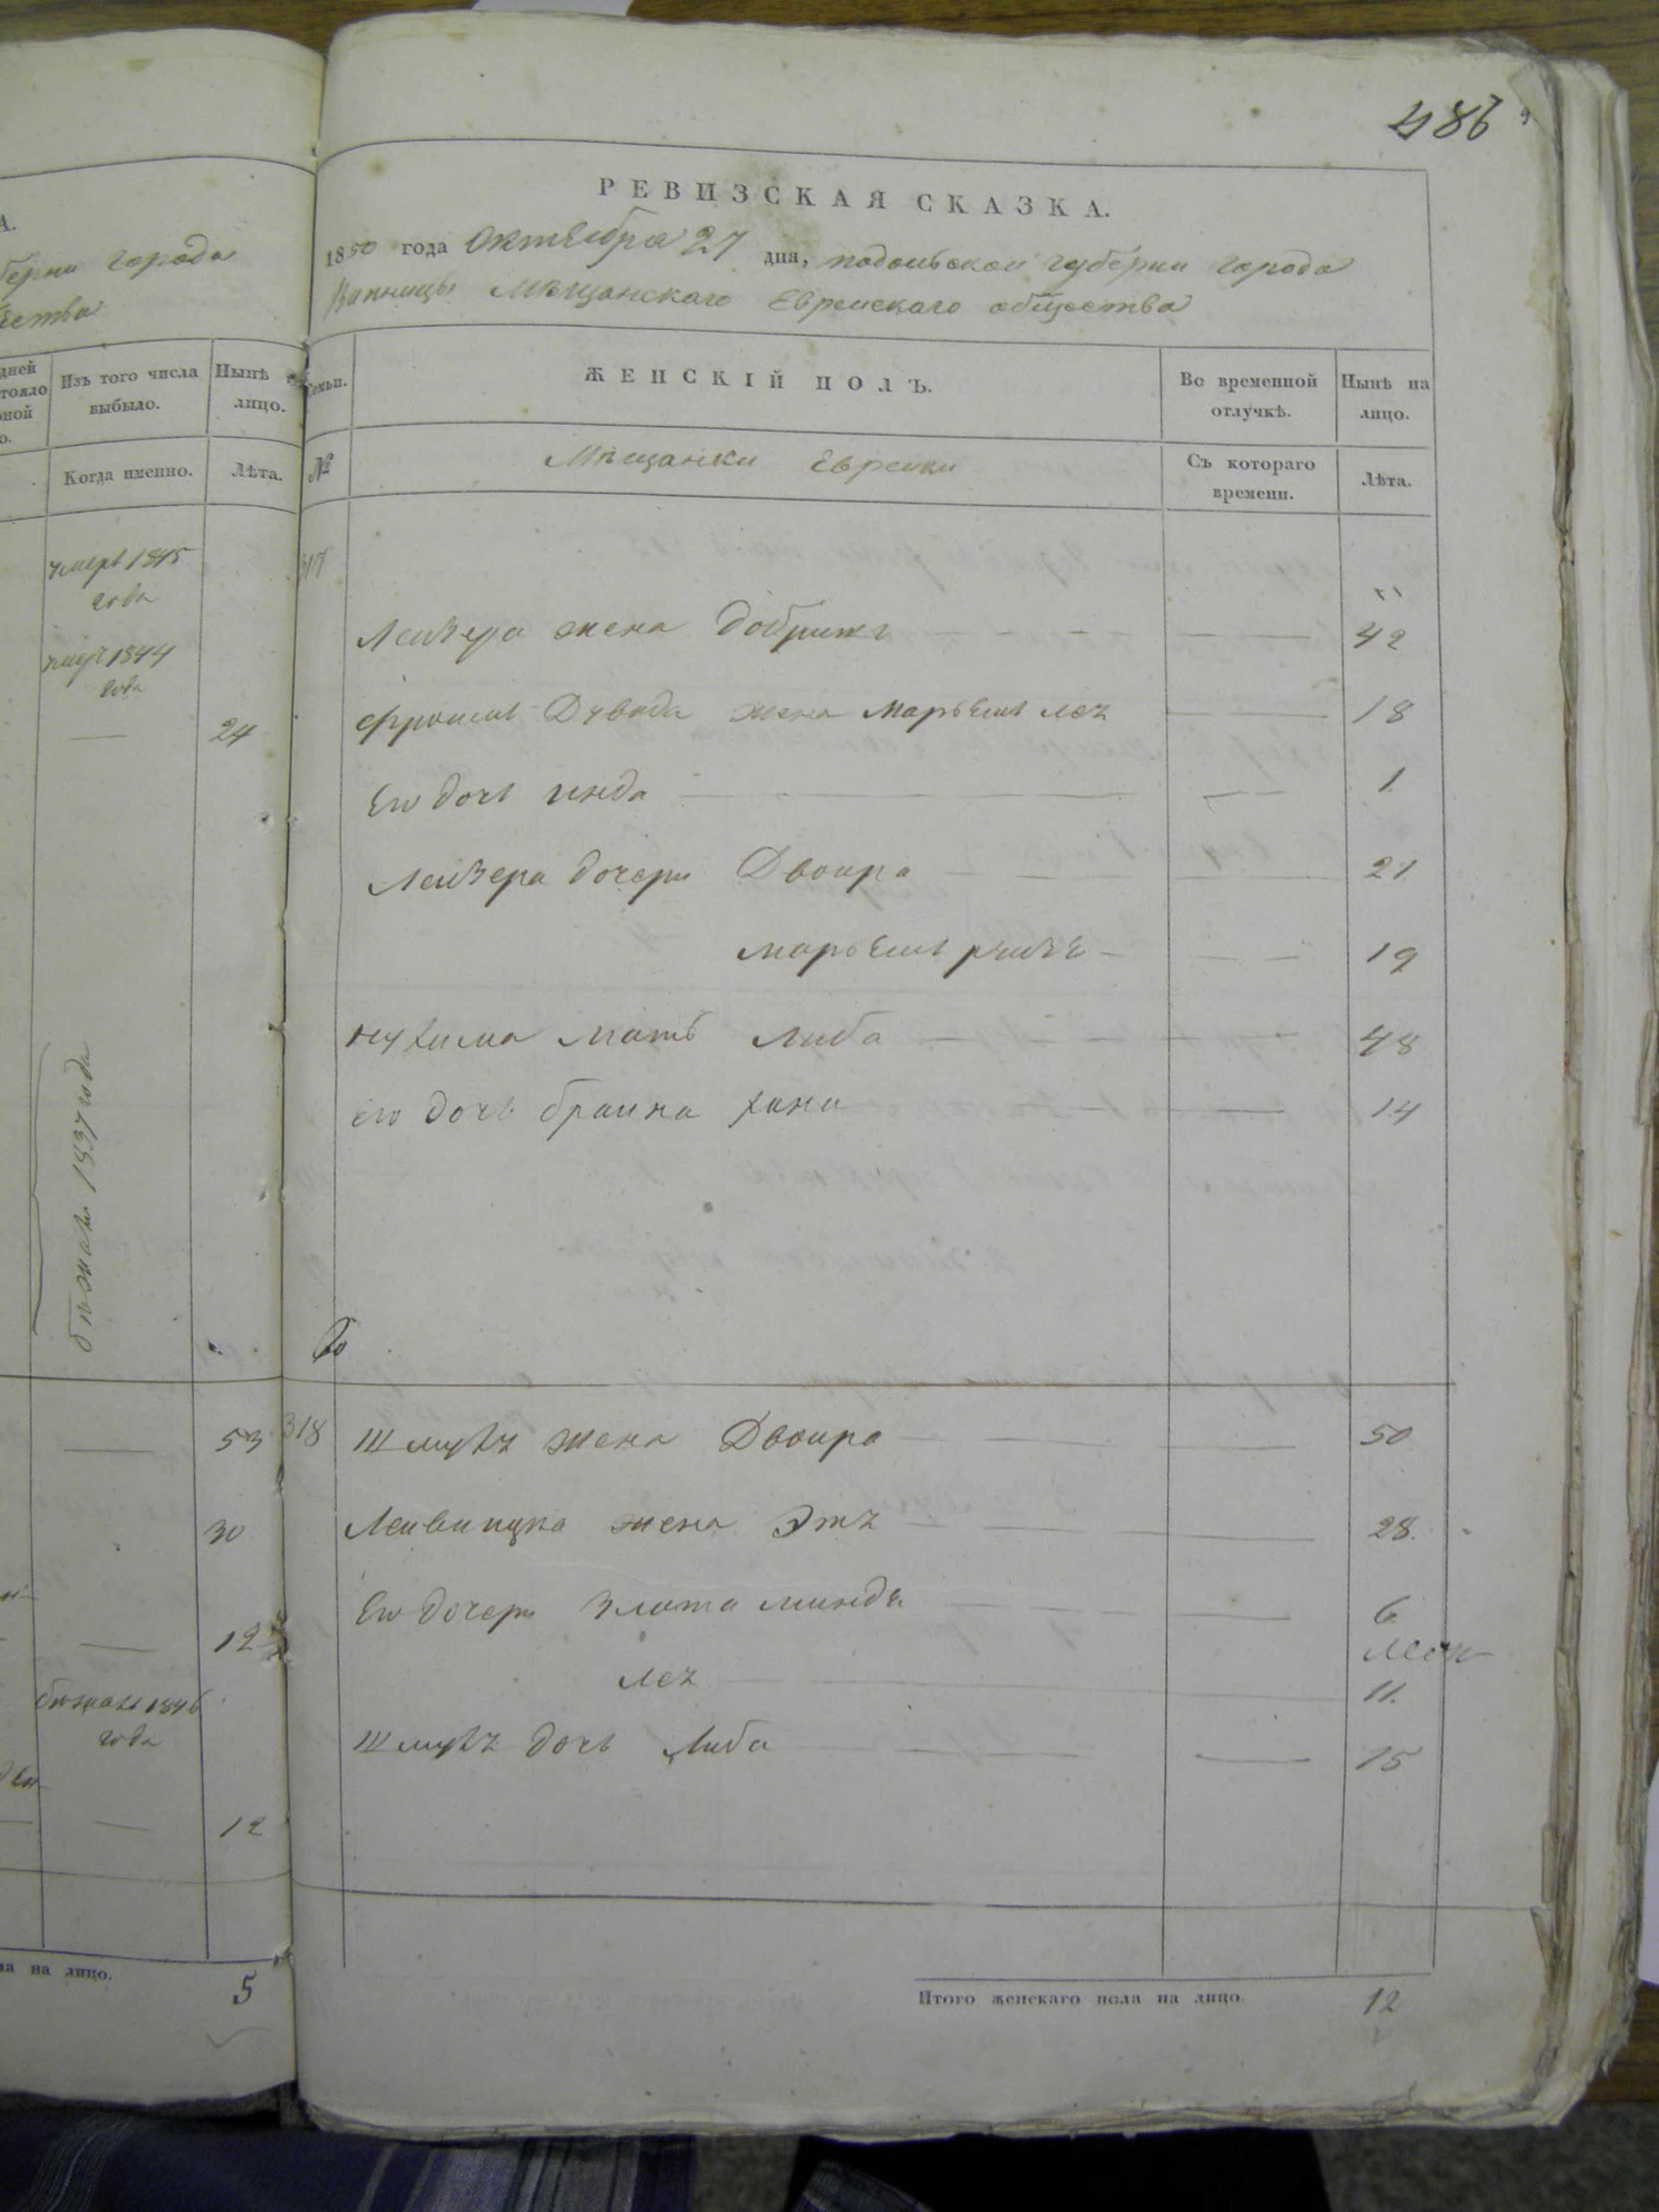 А.
берни города
ества
дней
тояло
ной
о.
Изъ того числа
выбыло.
Нынѣ
лицо.
Когда именно.
Лѣта.
умерь 1845
года
1844
года
24
бѣжалъ 1837 года
53
30
12
бѣжалъ 1846
года
12
на лицо.
5
486
РЕВИЗСКАЯ СКАЗКА.
1850 года Октября 27 дня, подольской губерни города
Винницы Мѣщанскаго Еврейскаго общества
Семьи.
ЖЕНСКІЙ ПОЛЪ.
Во временной
отлучкѣ.
Нынѣ на
лицо.
№
Мѣщанки Еврейки
Съ котораго
времени.
Лѣта.
317
Лейзера жена Добриш 42
Фроимъ Дувида жена Марьемъ лея 18
Его дочь гинда 1
Лейзера дочери Двойра 21
Марьемъ 19
нухима мать Либа 48
его дочь браина хана 14
318 Шмуля жена Двойра 50
жена Этя 28.
Его дочери Злота минда 6
лея 11.
Шмуля дочь Либа 15
Итого женскаго пола на лицо. 12